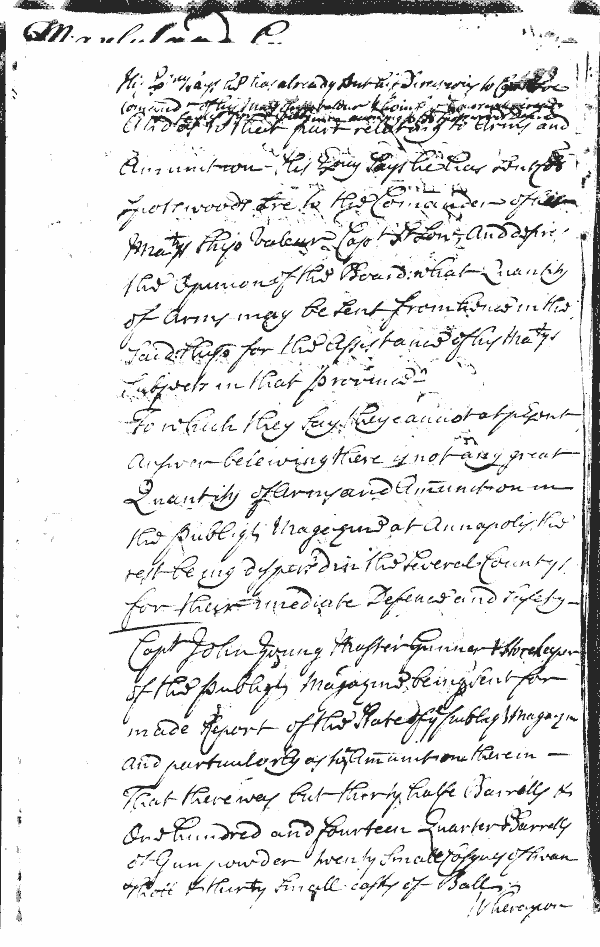 Maryland Sc
His Exncy says he has already sent his Directions to
Comand of his Maty Ships Valeur &
And as to that part relating to Arms and
Amunition his Exncy Says he has sent
Spotswoods Lre to the Comander of
Maty Ship Valeur Capt And desires
the Opinion of the Board what Quantity
of Arms may be sent from hence in the
said Ships for the Assistance of his Matys
Subjects in that Province
To which they Say they cannot at psent
Answer beleiving there is not any great
Quantity of Arms and Amunition in
the Publiqk Magazine at Annapolis the
rest being dispers'd in the Several Countys
for their imediate Defence and Safety
Capt John Young Master Gunner & Storekeeper
of the Publiqk Magazine being sent for
made Report of the State of ye Publiq Magazin
And particularly as to Amunition therein
That there was but thirty halfe Barrells &
One hundred and fourteen Quarter Barrells
of Gunpowder twenty Small Casques of Swan
Shott & thirty Small casks of Ball
Whereupon